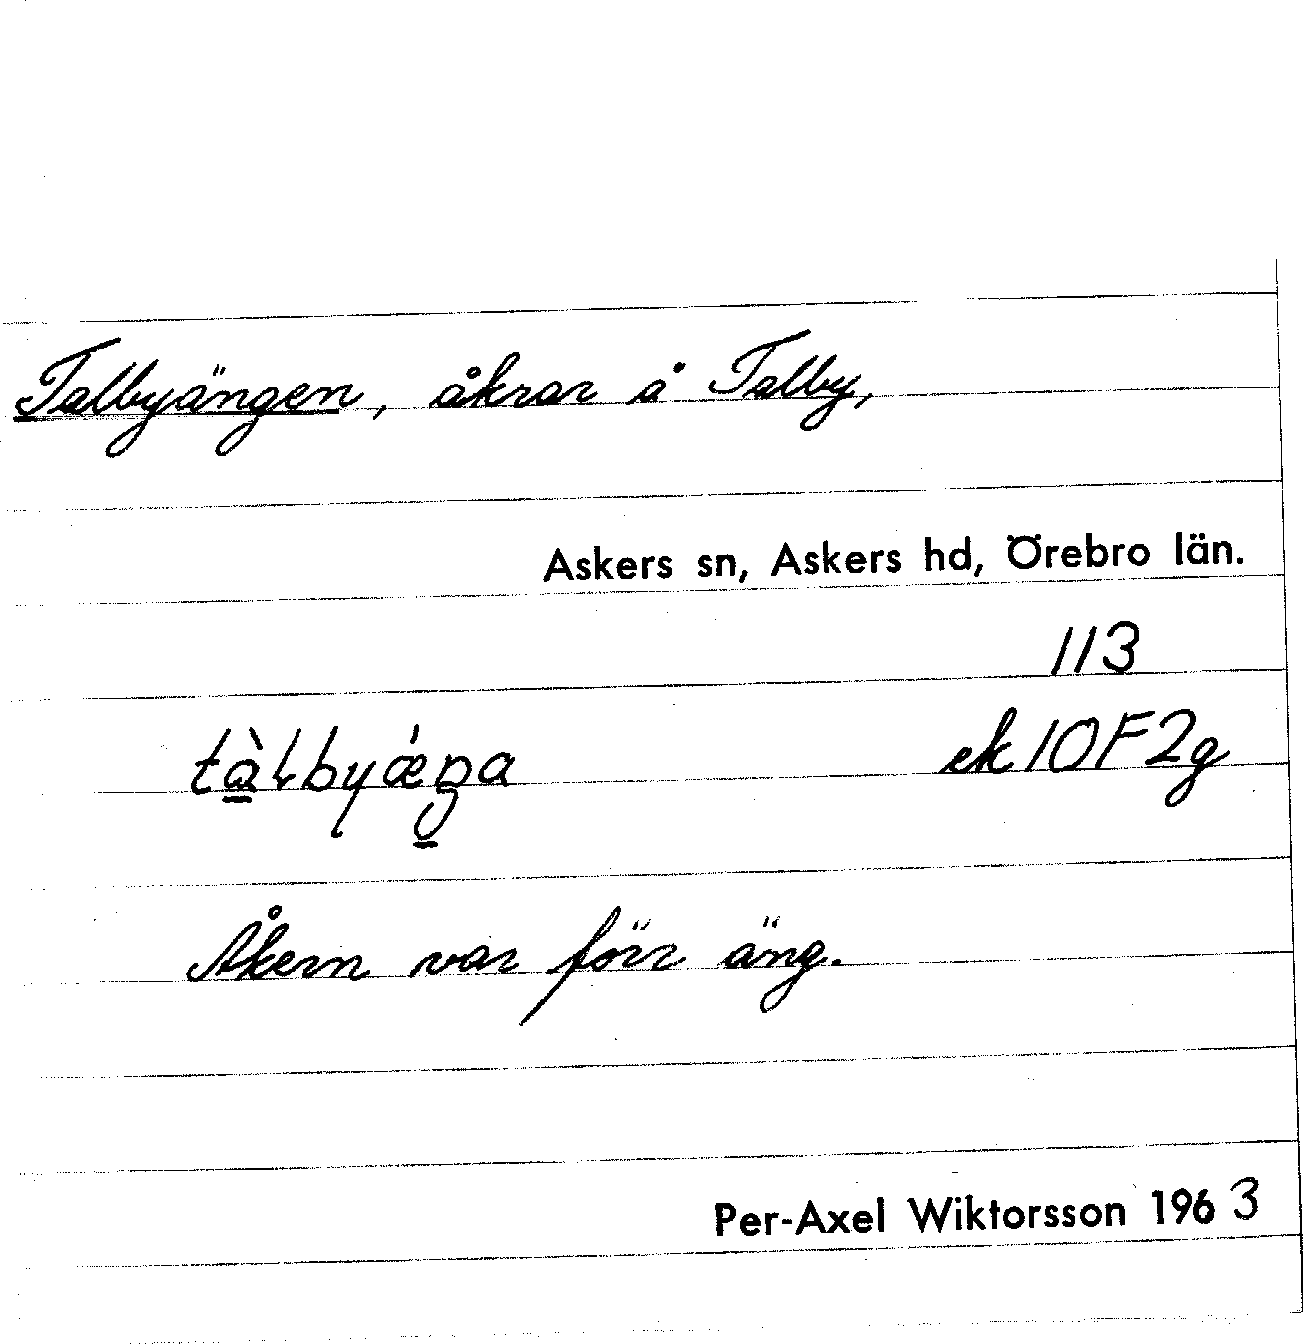 Talbyängen, åkrar å Talby,
Askers sn, Askers hd, Örebro län.
113
tàlbyǽŋa ek 10F2g
Åkern var förr äng.
Per-Axel Wiktorsson 1963